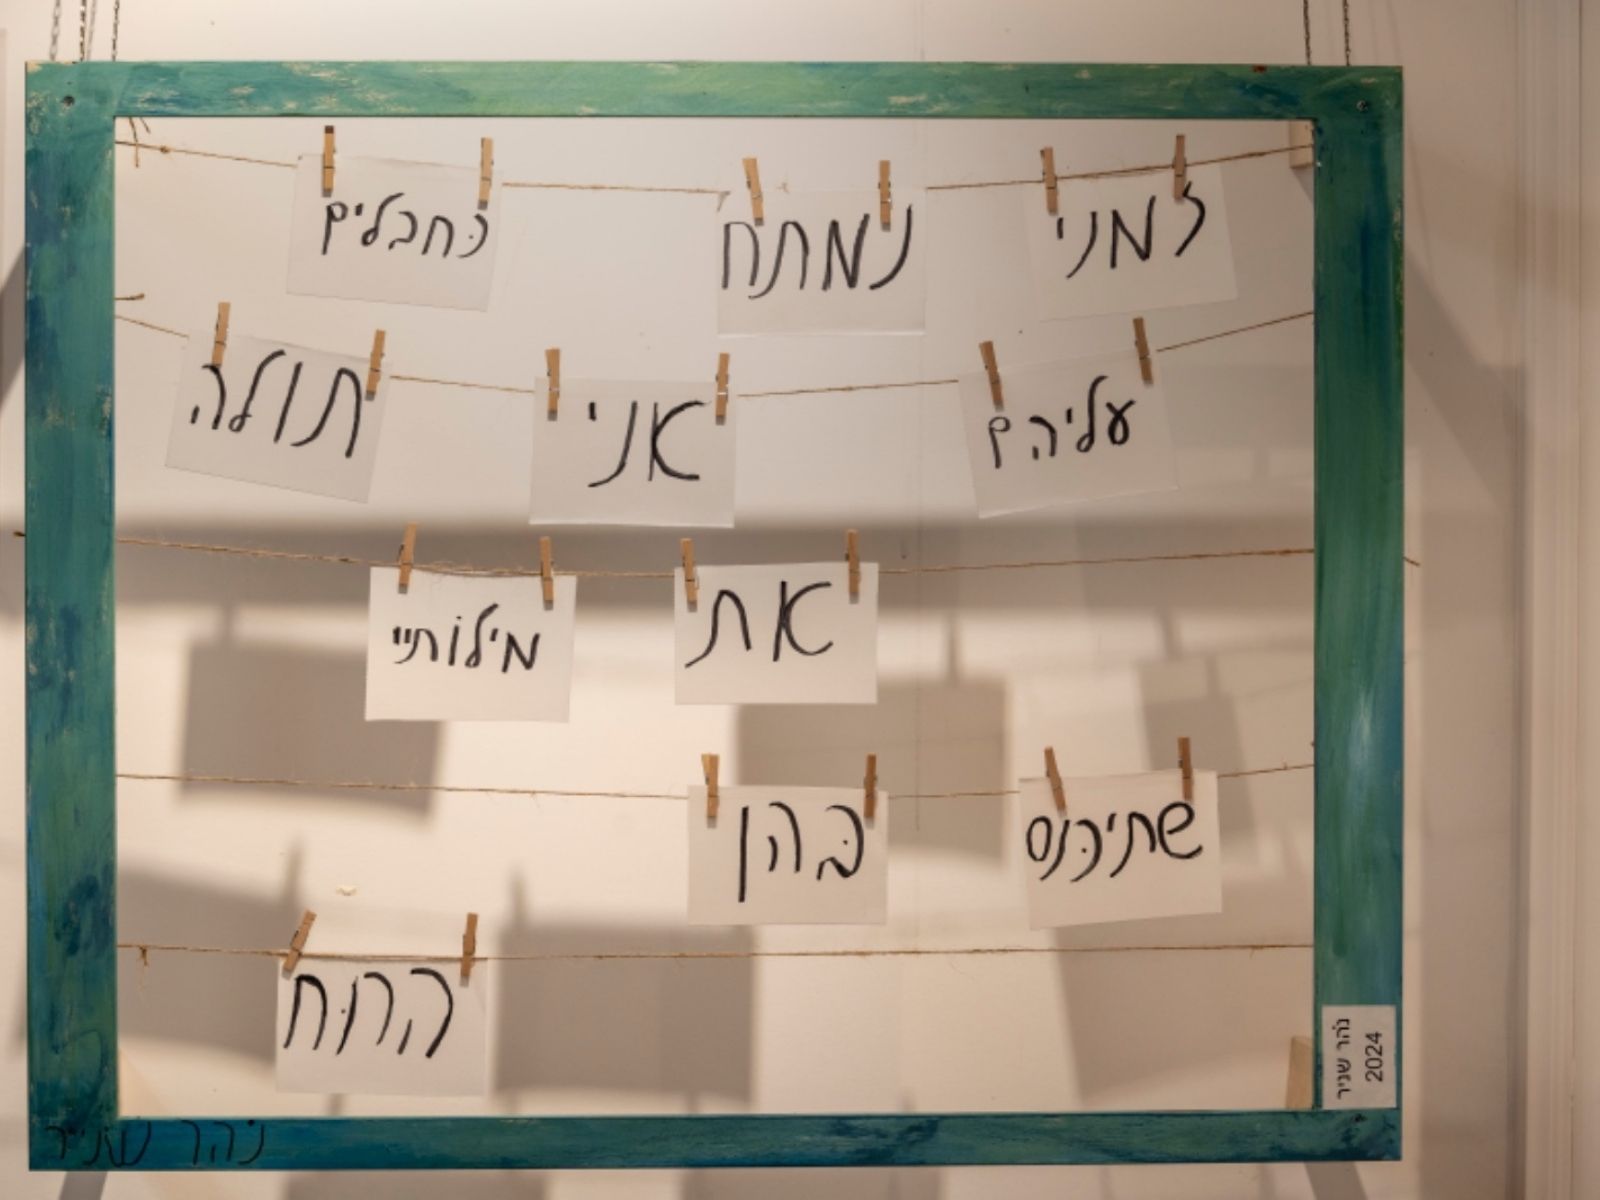 זמני נמתח כחבלים
עליהם אני תולה
את מילותיי
שתיכנס בהן
הרוח
נהר שניר
2024
נהר שניר